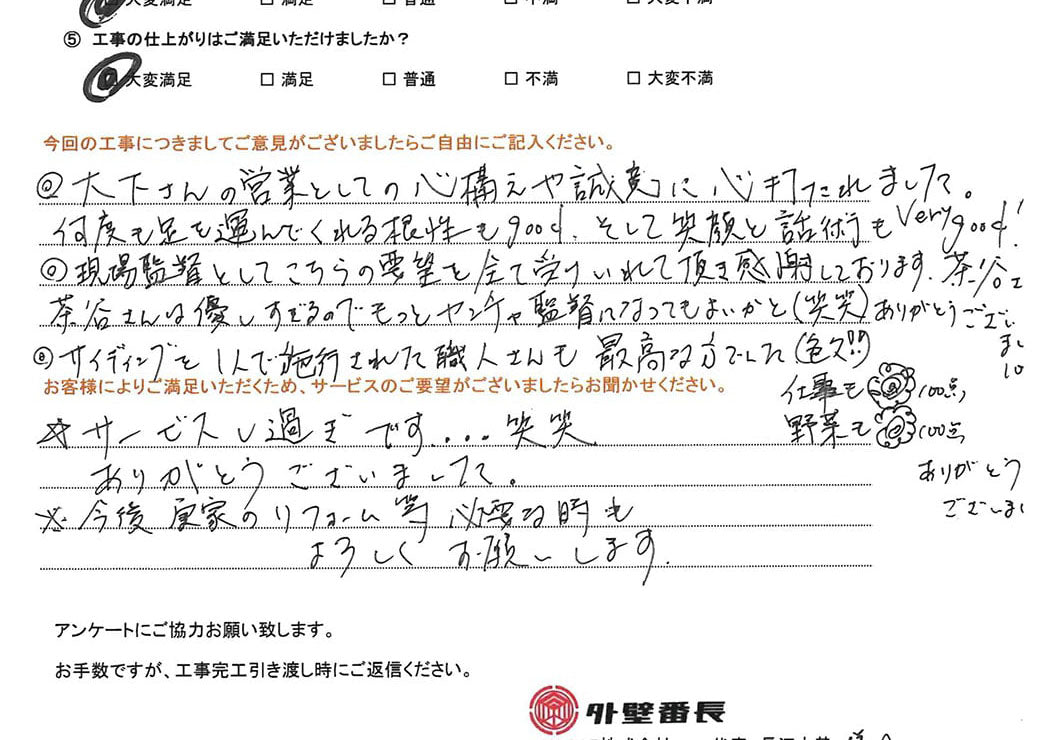 大変満足 □ 満足 □ 普通 □ 不満 □ 大変不満
⑤ 工事の仕上がりはご満足いただけましたか?
大変満足 □ 満足 □ 普通 □ 不満 □ 大変不満
今回の工事につきましてご意見がございましたらご自由にご記入ください。
◎大下さんの営業としての心構えや誠実に心打たれました。
何度も足を運んでくれる根性もgood. そして笑顔と話術もVery good!
◎現場監督としてこちらの要望を全て受けいれて頂き感謝しております. 茶谷
茶谷さんは優しすぎるのでもっとヤンチャ監督になってもよいかと(笑笑)ありがとうござい
まし
◎サイディングを1人で施行された職人さんも最高な方でした
お客様によりご満足いただくため、サービスのご要望がございましたらお聞かせください。
仕事も 100点
野菜も 100点
ありがとう
ございま
☆サービスし過ぎです...笑笑
ありがとうございました。
※今後 家のリフォーム等必要な時も
よろしくお願いします.
アンケートにご協力お願い致します。
お手数ですが、工事完工引き渡し時にご返信ください。
外壁番長